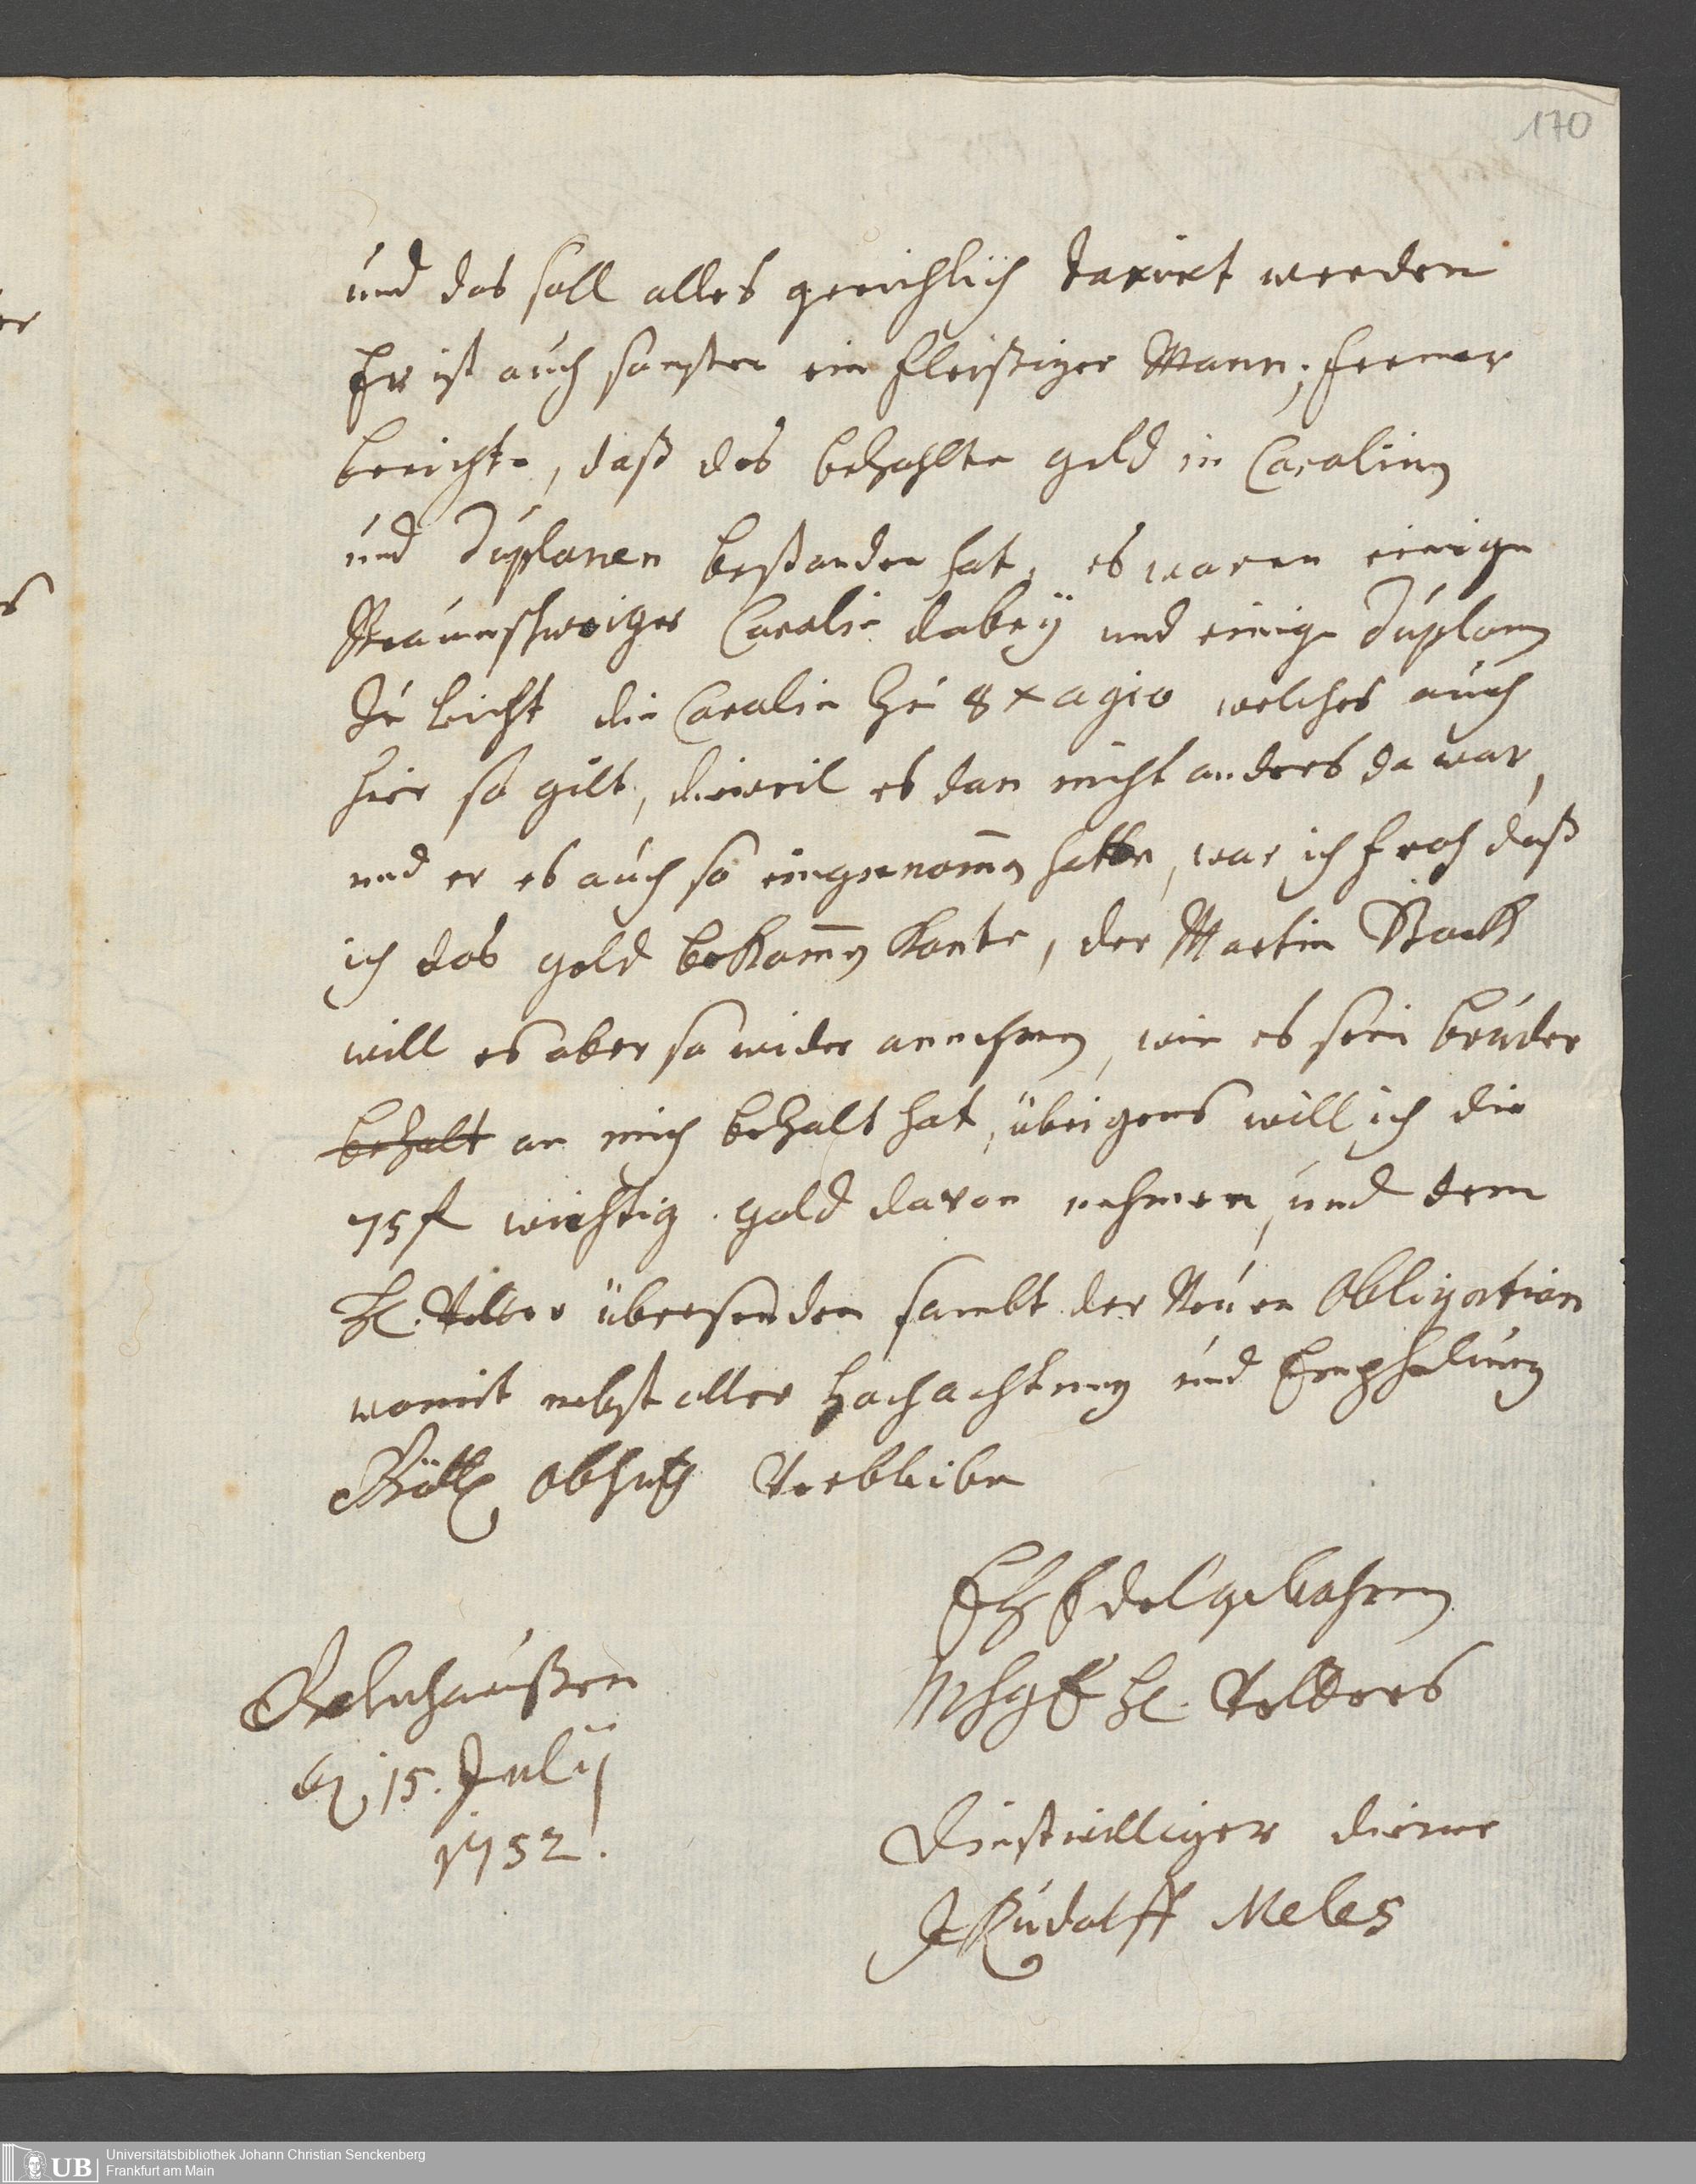 170
und das soll alles gerichlich taxirt werden
Er ist auch sonsten ein fleisiger Mann; ferner
berichte, daß das bezahlte geld in Carolinen
und Duplonen bestanden hat, es waren einige
Braunschweiger Carolin dabeÿ und einige Duplonen
Zu leicht die Carolin zu 8 x agio welches auch
hier so gilt, dieweil es dan nicht anders da war,
und er es auch so eingenomen hatte, war ich froh daß
ich das geld bekomen konte, der Martin Stock
will es aber so wider annehmen, wie es sein bruder
bezalt an mich bezalt hat, übrigens will ich die
75 f wichtig gold davon nehmen, und dem
H. übersenden sambt der Neuen Obligation
womit nebst aller Hochachtung und Empfehlung
Göttl. Obhutz Verbleibe
Ew Edelgebohren
MhgE H.
Gelnhaußen
den 15. Julij
1752.
Dienstwilliger diener
J Rudolff Meles
Universitätsbibliothek Johann Christian Senckenberg
Frankfurt am Main
UB